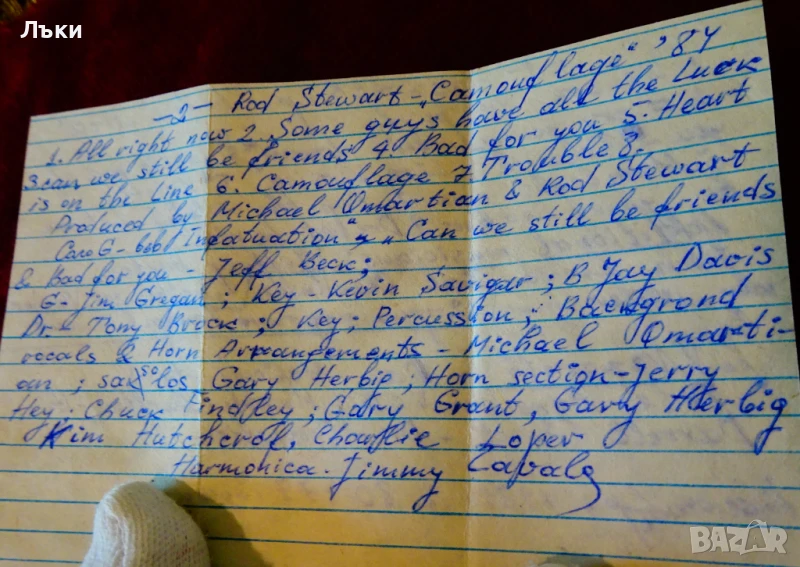 Лъки
-2- Rod Stewart - „Camouflage" '84
1. All right now 2. Some guys have all the Luck
3. can we still be friends 4. Bad for you 5. Heart
is on the Line 6. Camouflage 7. Trouble 8.
Produced by Michael Omartian & Rod Stewart
G - в „Infatuation", „Can we still be friends
& Bad for you - Jeff Beck;
G - Jim Gregan; Key - Kevin Savigar; B Jay Davis
Dr - Tony Brock; Key; Percussion; Backgrond
vocals & Horn Arrangements - Michael Omarti-
an; sax so los Gary Herbig; Horn section - Jerry
Hey; Chuck Findley; Gary Grant, Gary Herbig
Kim Hutchcrof, Charlie Loper
Harmonica - Jimmy
BAZAR